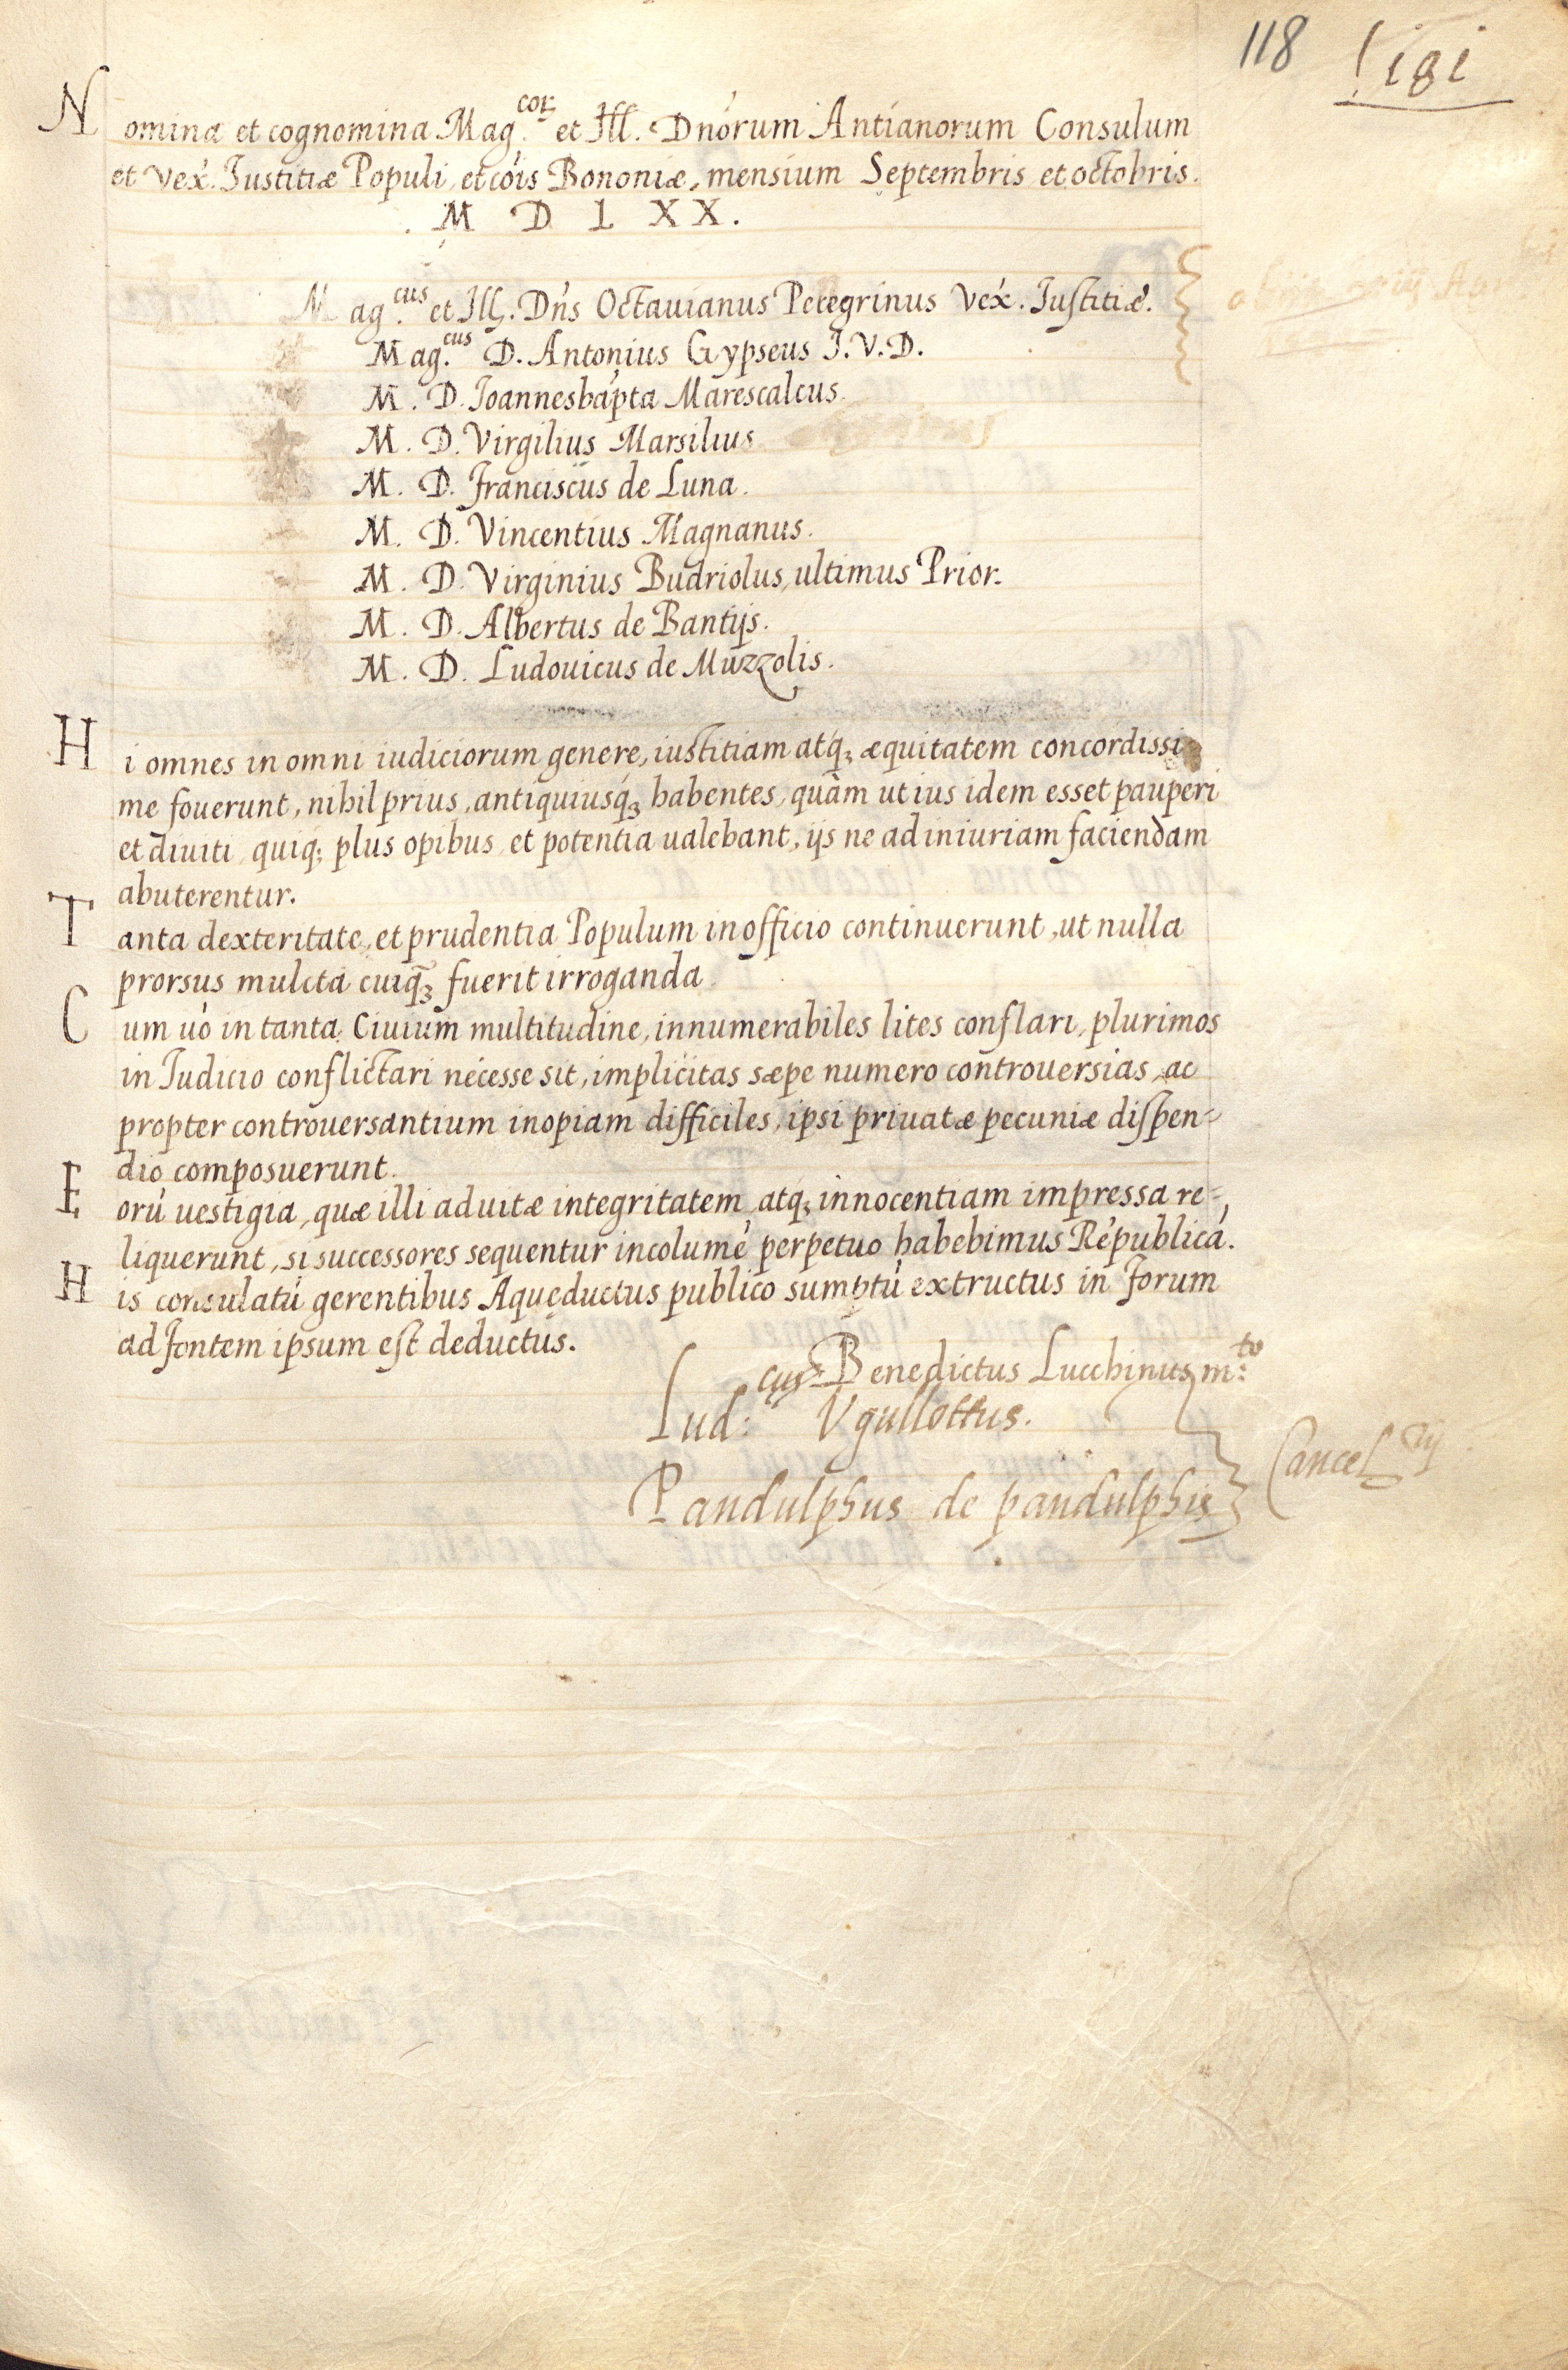 118 181
Nomina et cognomina Mag.cor et Ill. Dnorum Antianorum Consulum
et Vex. Iustitiæ Populi, et cois Bononiæ, mensium Septembris et octobris.
. M D L X X .
Mag.cus et Ill. Dns Octavianus Peregrinus Vex. Iustitiæ.
Mag.cus D. Antonius Gypseus I. V. D.
M. D. Ioannesbapta Marescalcus.
M. D. Virgilius Marsilius
M. D. Franciscus de Luna.
M. D. Vincentius Magnanus.
M. D. Virginius Budriolus, ultimus Prior.
M. D. Albertus de Bantijs.
M. D. Ludouicus de Muzzolis.
Hi omnes in omni iudiciorum genere, iustitiam atq; æquitatem concordissi
me fouerunt, nihil prius, antiquiusq; habentes, quàm ut ius idem esset pauperi
et diuiti, quiq; plus opibus, et potentia ualebant, ijs ne ad iniuriam faciendam
abuterentur.
Tanta dexteritate, et prudentia Populum in officio continuerunt, ut nulla
prorsus mulcta cuiq; fuerit irroganda
Cum uò in tanta Ciuium multitudine, innumerabiles lites conflari, plurimos
in Iudicio conflictari necesse sit, implicitas sæpe numero controuersias, ac
propter controuersantium inopiam difficiles, ipsi priuatæ pecuniæ dispen=
dio composuerunt.
Eorū uestigia, quæ illi ad uitæ integritatem atq; innocentiam impressa re=
liquerunt, si successores sequentur incolumē perpetuo habebimus Rēpublicā.
His consulatū gerentibus Aquęductus publico sumptu extructus in forum
ad fontem ipsum est deductus.
Benedictus Lucchinus m:to
Lud:cus Vgullottus.
Pandulphus de pandulphis
Cancel.rij